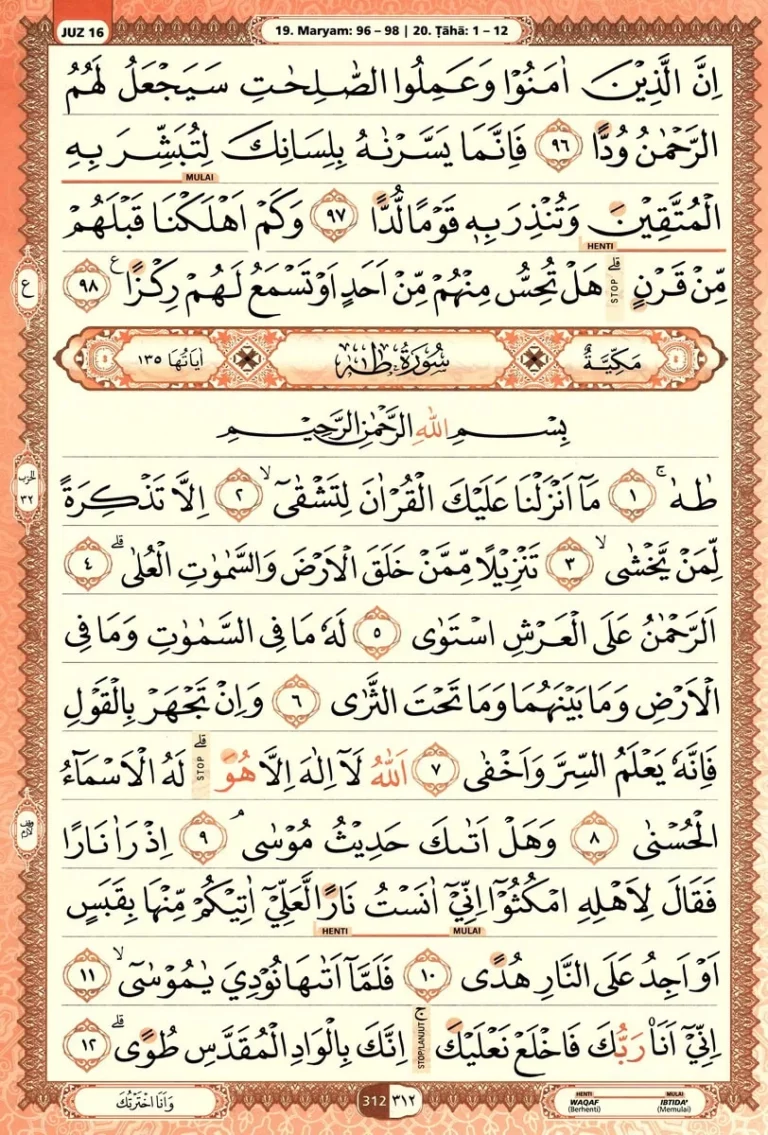 JUZ 16
19. Maryam: 96 – 98 | 20. Ṭāhā: 1 – 12
اِنَّ الَّذِيْنَ اٰمَنُوْا وَعَمِلُوا الصّٰلِحٰتِ سَيَجْعَلُ لَهُمُ
الرَّحْمٰنُ وُدًّا ٩٦ فَاِنَّمَا يَسَّرْنٰهُ بِلِسَانِكَ لِتُبَشِّرَ بِهِ
MULAI
الْمُتَّقِيْنَ وَتُنْذِرَ بِهٖ قَوْمًا لُّدًّا ٩٧ وَكَمْ اَهْلَكْنَا قَبْلَهُمْ
HENTI
مِّنْ قَرْنٍ ۗ STOP هَلْ تُحِسُّ مِنْهُمْ مِّنْ اَحَدٍ اَوْ تَسْمَعُ لَهُمْ رِكْزًا ࣖ ٩٨
ع
مَكِّيَّةٌ سُوْرَةُ طٰهٰ اٰيَاتُهَا ١٣٥
بِسْمِ اللّٰهِ الرَّحْمٰنِ الرَّحِيْمِ
طٰهٰ ۚ ١ مَآ اَنْزَلْنَا عَلَيْكَ الْقُرْاٰنَ لِتَشْقٰٓى ۙ ٢ اِلَّا تَذْكِرَةً
الحزب
٣٢
لِّمَنْ يَّخْشٰى ۙ ٣ تَنْزِيْلًا مِّمَّنْ خَلَقَ الْاَرْضَ وَالسَّمٰوٰتِ الْعُلٰى ۗ ٤
اَلرَّحْمٰنُ عَلَى الْعَرْشِ اسْتَوٰى ٥ لَهٗ مَا فِى السَّمٰوٰتِ وَمَا فِى
الْاَرْضِ وَمَا بَيْنَهُمَا وَمَا تَحْتَ الثَّرٰى ٦ وَاِنْ تَجْهَرْ بِالْقَوْلِ
فَاِنَّهٗ يَعْلَمُ السِّرَّ وَاَخْفٰى ٧ اَللّٰهُ لَآ اِلٰهَ اِلَّا هُوَ ۗ STOP لَهُ الْاَسْمَاۤءُ
الْحُسْنٰى ٨ وَهَلْ اَتٰىكَ حَدِيْثُ مُوْسٰى ۘ ٩ اِذْ رَاٰ نَارًا
فَقَالَ لِاَهْلِهِ امْكُثُوْٓا اِنِّيْٓ اٰنَسْتُ نَارًا لَّعَلِّيْٓ اٰتِيْكُمْ مِّنْهَا بِقَبَسٍ
HENTI MULAI
اَوْ اَجِدُ عَلَى النَّارِ هُدًى ١٠ فَلَمَّآ اَتٰىهَا نُوْدِيَ يٰمُوْسٰٓى ۙ ١١
اِنِّيْٓ اَنَا۠ رَبُّكَ فَاخْلَعْ نَعْلَيْكَ ۚ STOP/LANJUT اِنَّكَ بِالْوَادِ الْمُقَدَّسِ طُوًى ۗ ١٢
وَاَنَا اخْتَرْتُكَ
312 ٣١٢
HENTI MULAI
WAQAF IBTIDA'
(Berhenti) (Memulai)